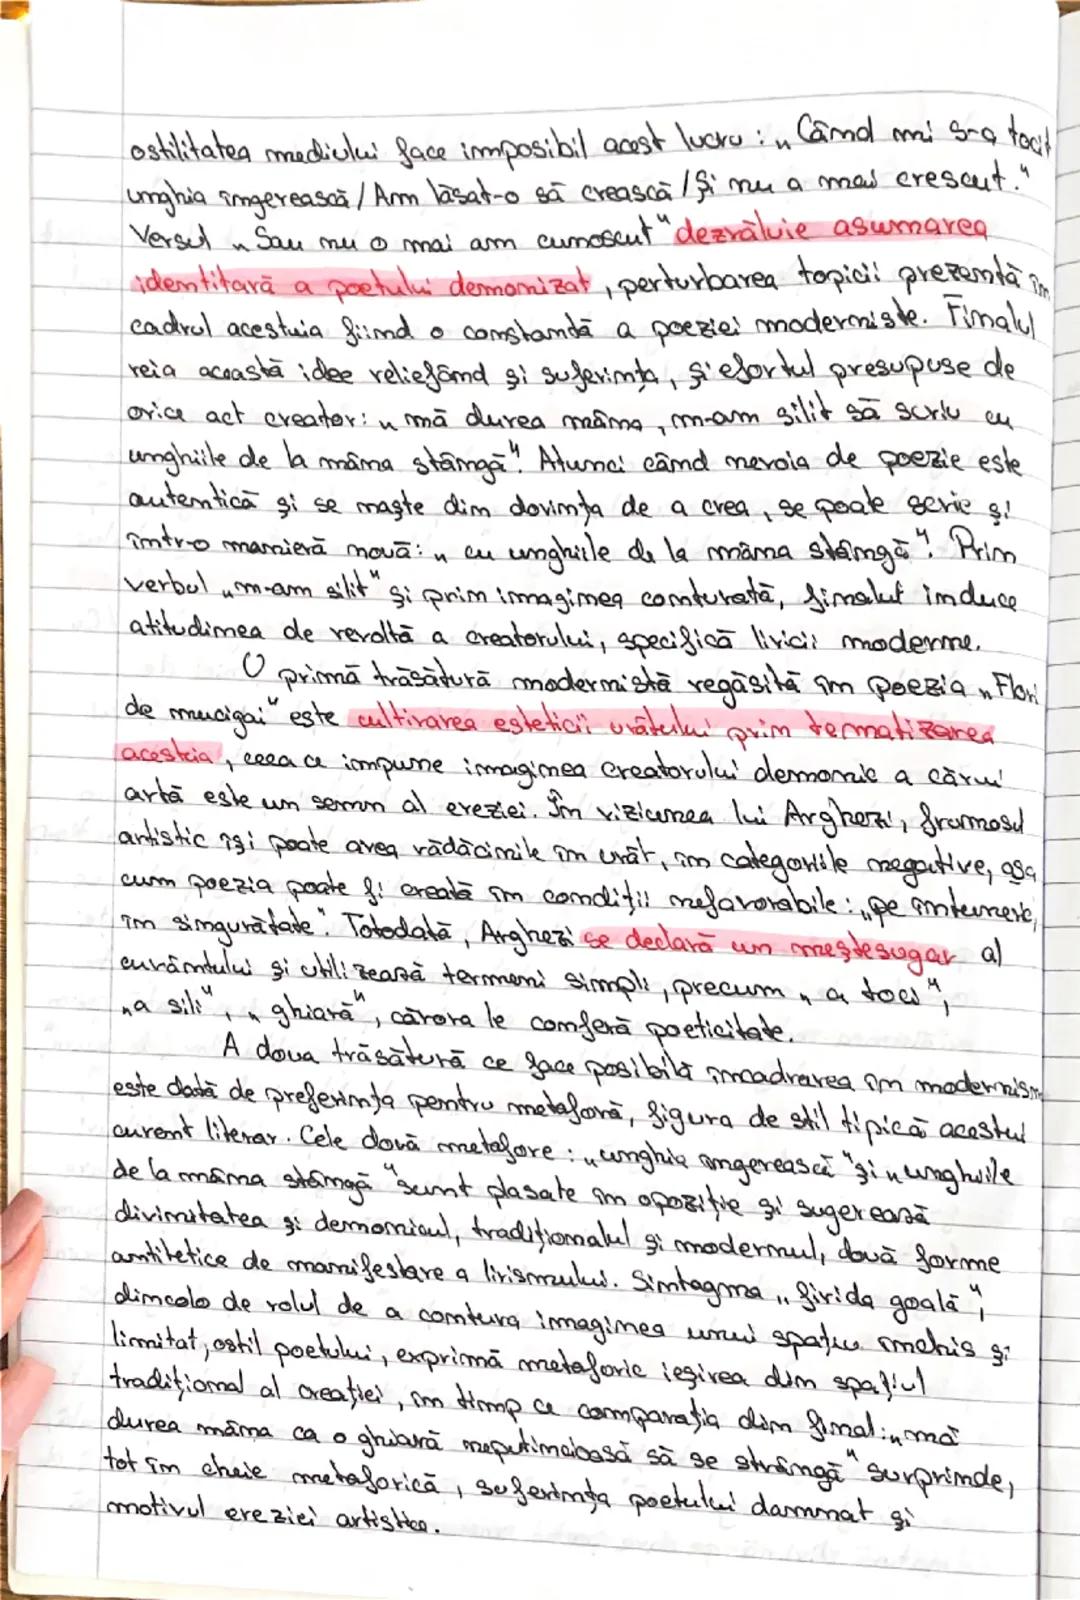 ostilitatea mediului face imposibil acest lucru : „Când mi s-a tocit
unghia îngerească / Am lăsat-o să crească / Și nu a mai crescut."
Versul „Sau nu o mai am cunoscut" dezvăluie asumarea
identitară a poetului demonizat, perturbarea topicii prezentă în
cadrul acestuia fiind o constantă a poeziei moderniste. Finalul
reia această idee reliefând și suferința, și efortul presupuse de
orice act creator: „mă durea mâna, m-am silit să scriu cu
unghiile de la mâna stângă". Atunci când nevoia de poezie este
autentică și se naște din dorința de a crea, se poate scrie și
într-o manieră nouă: „cu unghiile de la mâna stângă". Prin
verbul „m-am silit" și prin imaginea conturată, finalul induce
atitudinea de revoltă a creatorului, specifică liricii moderne.
O primă trăsătură modernistă regăsită în poezia „Flori
de mucigai" este cultivarea esteticii urâtului prin tematizarea
acesteia, ceea ce impune imaginea creatorului demonic a cărui
artă este un semn al ereziei. În viziunea lui Arghezi, frumosul
artistic își poate avea rădăcinile în urât, în categoriile negative, așa
cum poezia poate fi creată în condiții nefavorabile: „pe întuneric,
în singurătate". Totodată, Arghezi se declară un meșteșugar al
cuvântului și utilizează termeni simpli, precum „a toci",
„a sili", „ghiară", cărora le conferă poeticitate.
A doua trăsătură ce face posibilă încadrarea în modernism
este dată de preferința pentru metaforă, figura de stil tipică acestui
curent literar. Cele două metafore : „unghia îngerească" și „unghiile
de la mâna stângă" sunt plasate în opoziție și sugerează
divinitatea și demonicul, tradiționalul și modernul, două forme
antitetice de manifestare a lirismului. Sintagma „firida goală",
dincolo de rolul de a contura imaginea unui spațiu închis și
limitat, ostil poetului, exprimă metaforic ieșirea din spațiul
tradițional al creației, în timp ce comparația din final: „mă
durea mâna ca o ghiară neputincioasă să se strângă" surprinde,
tot în cheie metaforică, suferința poetului damnat și
motivul ereziei artistice.